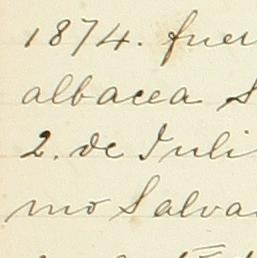 1874. fuer
albacea S
2. de Juli
mo Salva